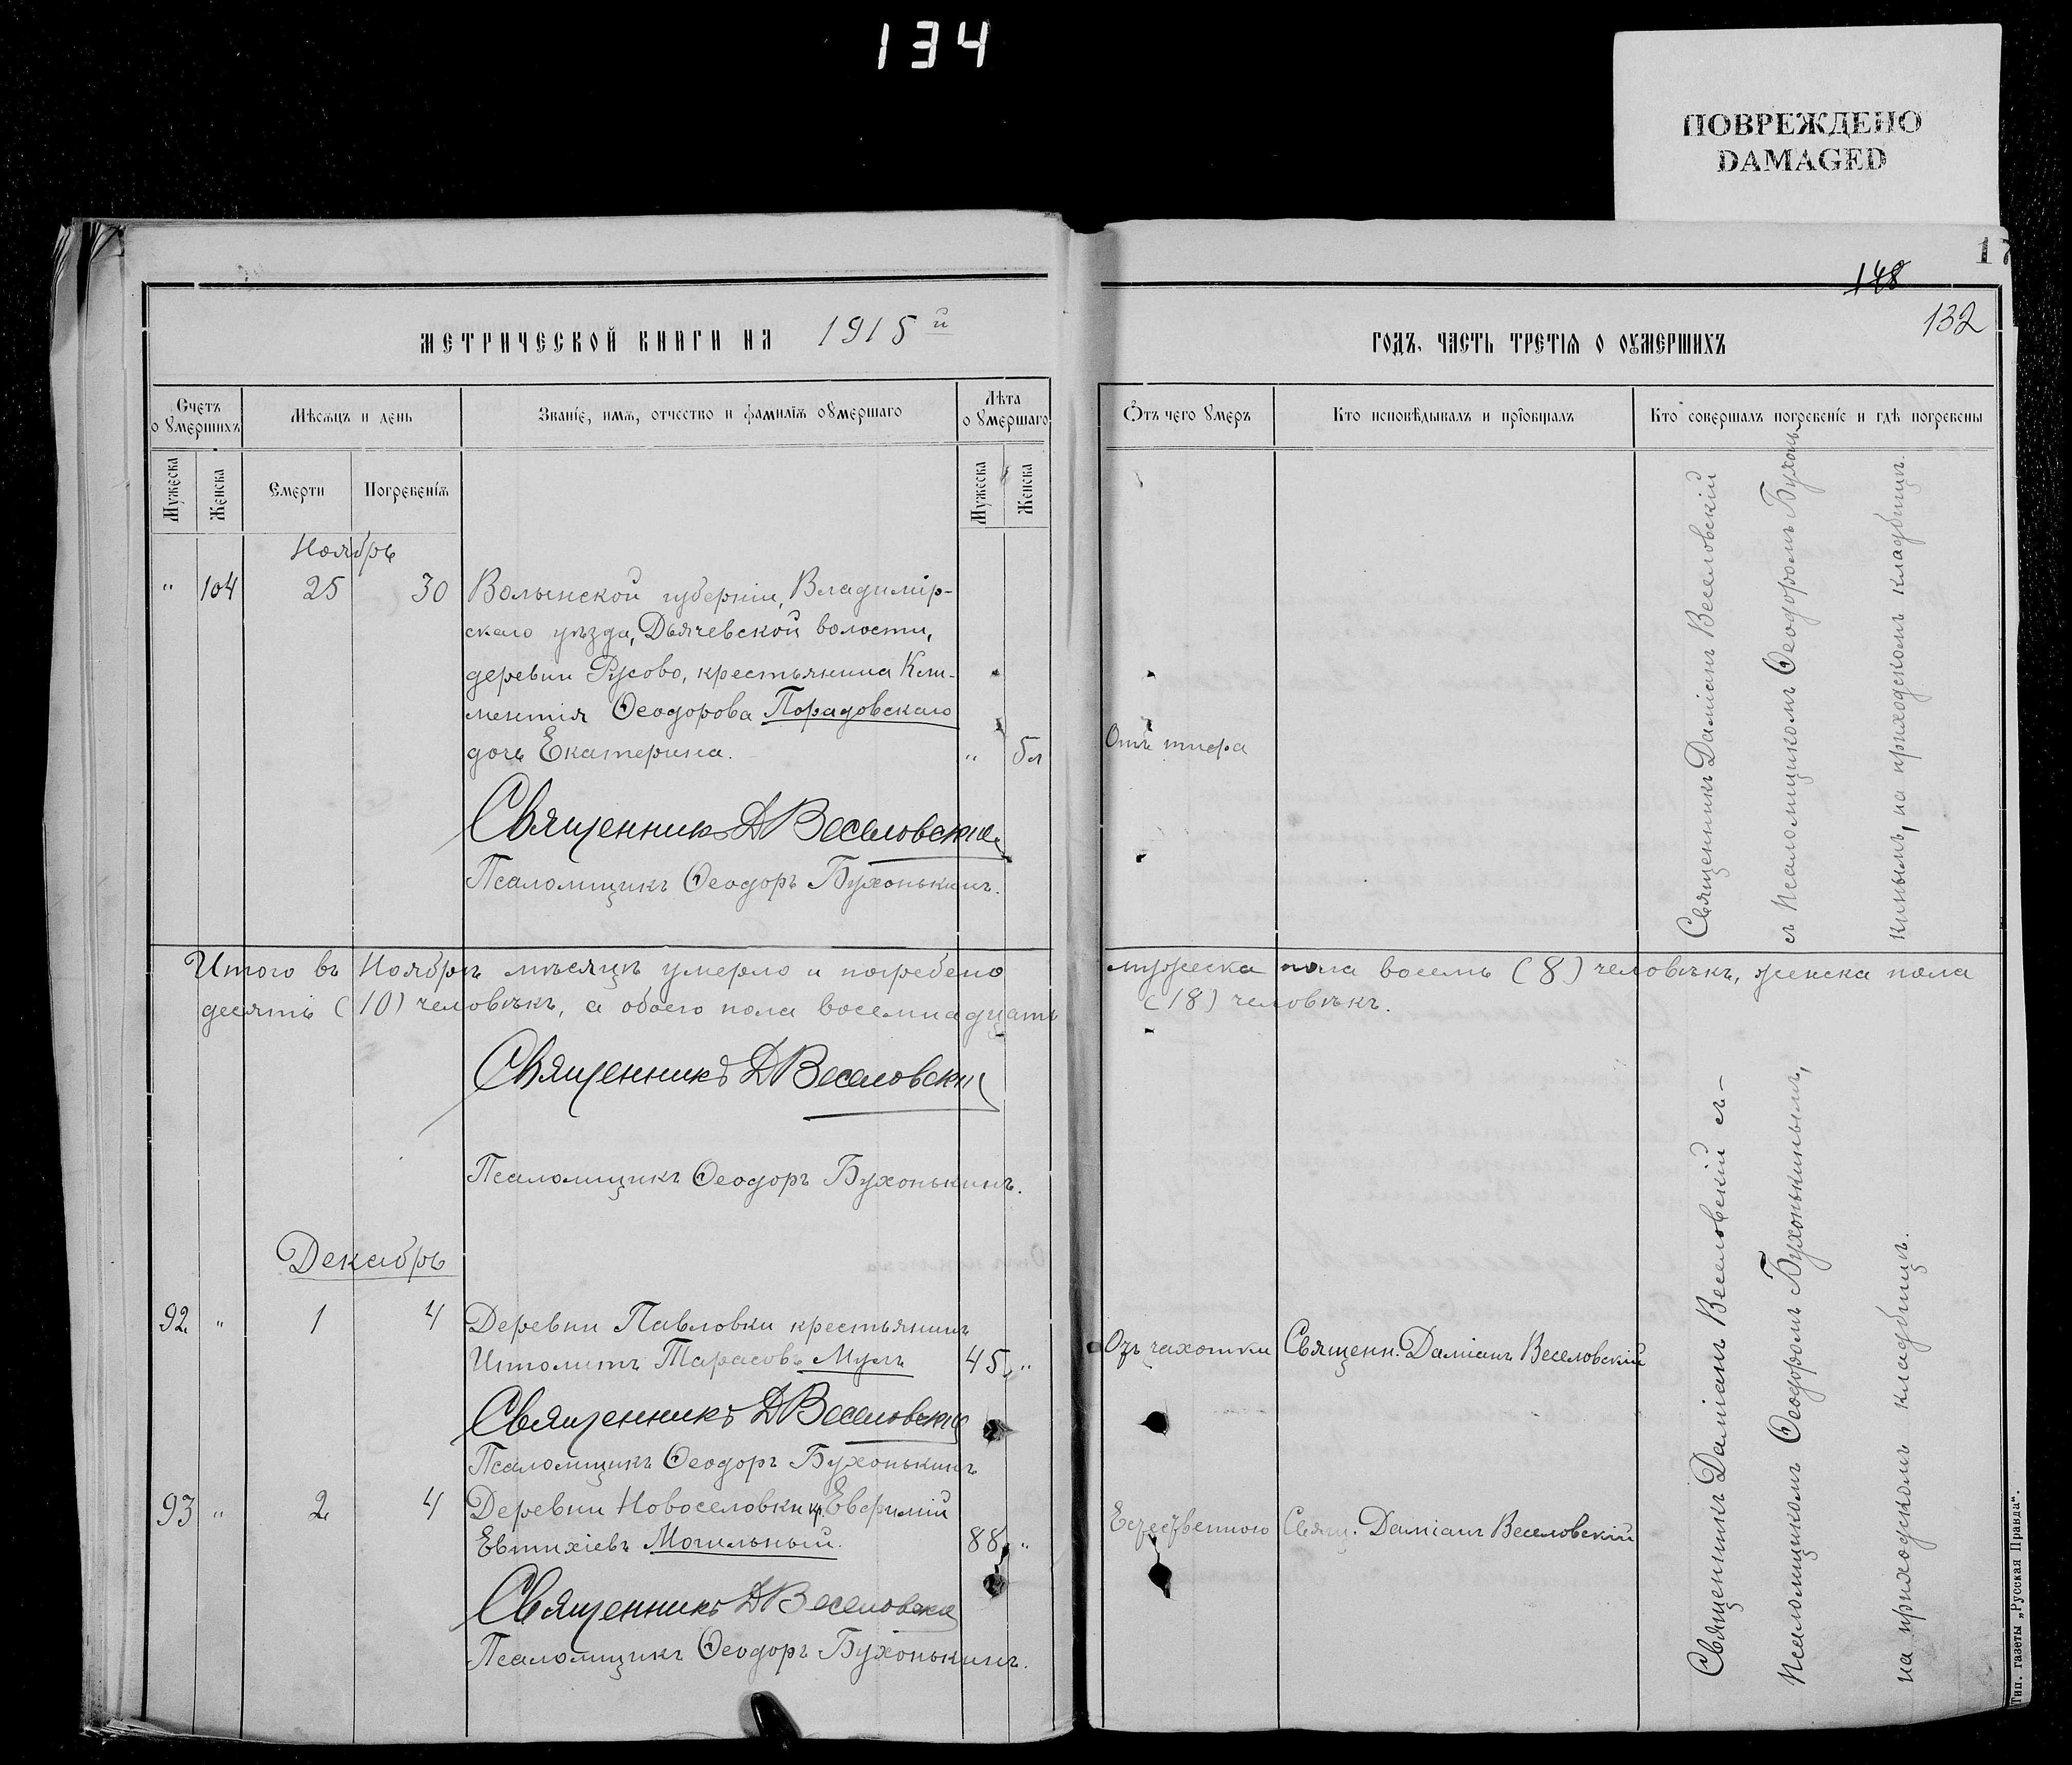 134
ПОВРЕЖДЕНО
DAMAGED
148
132
МЕТРИЧЕСКОЙ КНИГИ НА 1915й
ГОДЪ, ЧАСТЬ ТРЕТІѦ О ОУМЕРШИХЪ
Счетъ оумершихъ
Мѣсѧцъ и день
Званіе, имѧ, отчество и фамиліѧ оумершаго
Лѣта оумершаго
Мужеска
Женска
Смерти
Погребеніѧ
Мужеска
Женска
Отъ чего умеръ
Кто исповѣдывалъ и пріобщалъ
Кто совершалъ погребеніе и гдѣ погребены
Ноябрь
" 104 25 30 Волынской губерніи, Владимір-
скаго уѣзда, Дьячевской волости,
деревни Русово, крестьянина Кли-
ментія Ѳеодорова Порадовскаго
дочь Екатерина. " 5л Отъ тифа
Священникъ Д Веселовскій
Псаломщикъ Ѳеодоръ Бухонькинъ.
Священникъ Даміанъ Веселовскій
съ псаломщикомъ Ѳеодоромъ Бухонь-
кинымъ, на приходскомъ кладбищѣ.
Итого въ Ноябрѣ мѣсяцѣ умерло и погребено мужеска пола восемь (8) человѣкъ, женска пола
десять (10) человѣкъ, а обоего пола восемнадцать (18) человѣкъ.
Священникъ Д Веселовскій
Псаломщикъ Ѳеодоръ Бухонькинъ.
Декабрь
92 " 1 4 Деревни Павловки крестьянинъ
Иполитъ Тарасовъ Мулъ 45 " Отъ чахотки Священ. Даміанъ Веселовскій
Священникъ Д Веселовскій
Псаломщикъ Ѳеодоръ Бухонькинъ
93 " 2 4 Деревни Новоселовки кр. Евфимій
Евтихіевъ Могильный. 88 " Естественного Свящ. Даміанъ Веселовскій
Священникъ Д Веселовскій
Псаломщикъ Ѳеодоръ Бухонькинъ.
Священникъ Даміанъ Веселовскій съ-
псаломщикомъ Ѳеодоромъ Бухонькинымъ,
на приходскомъ кладбищѣ.
Тип. газеты „Русская Правда“.